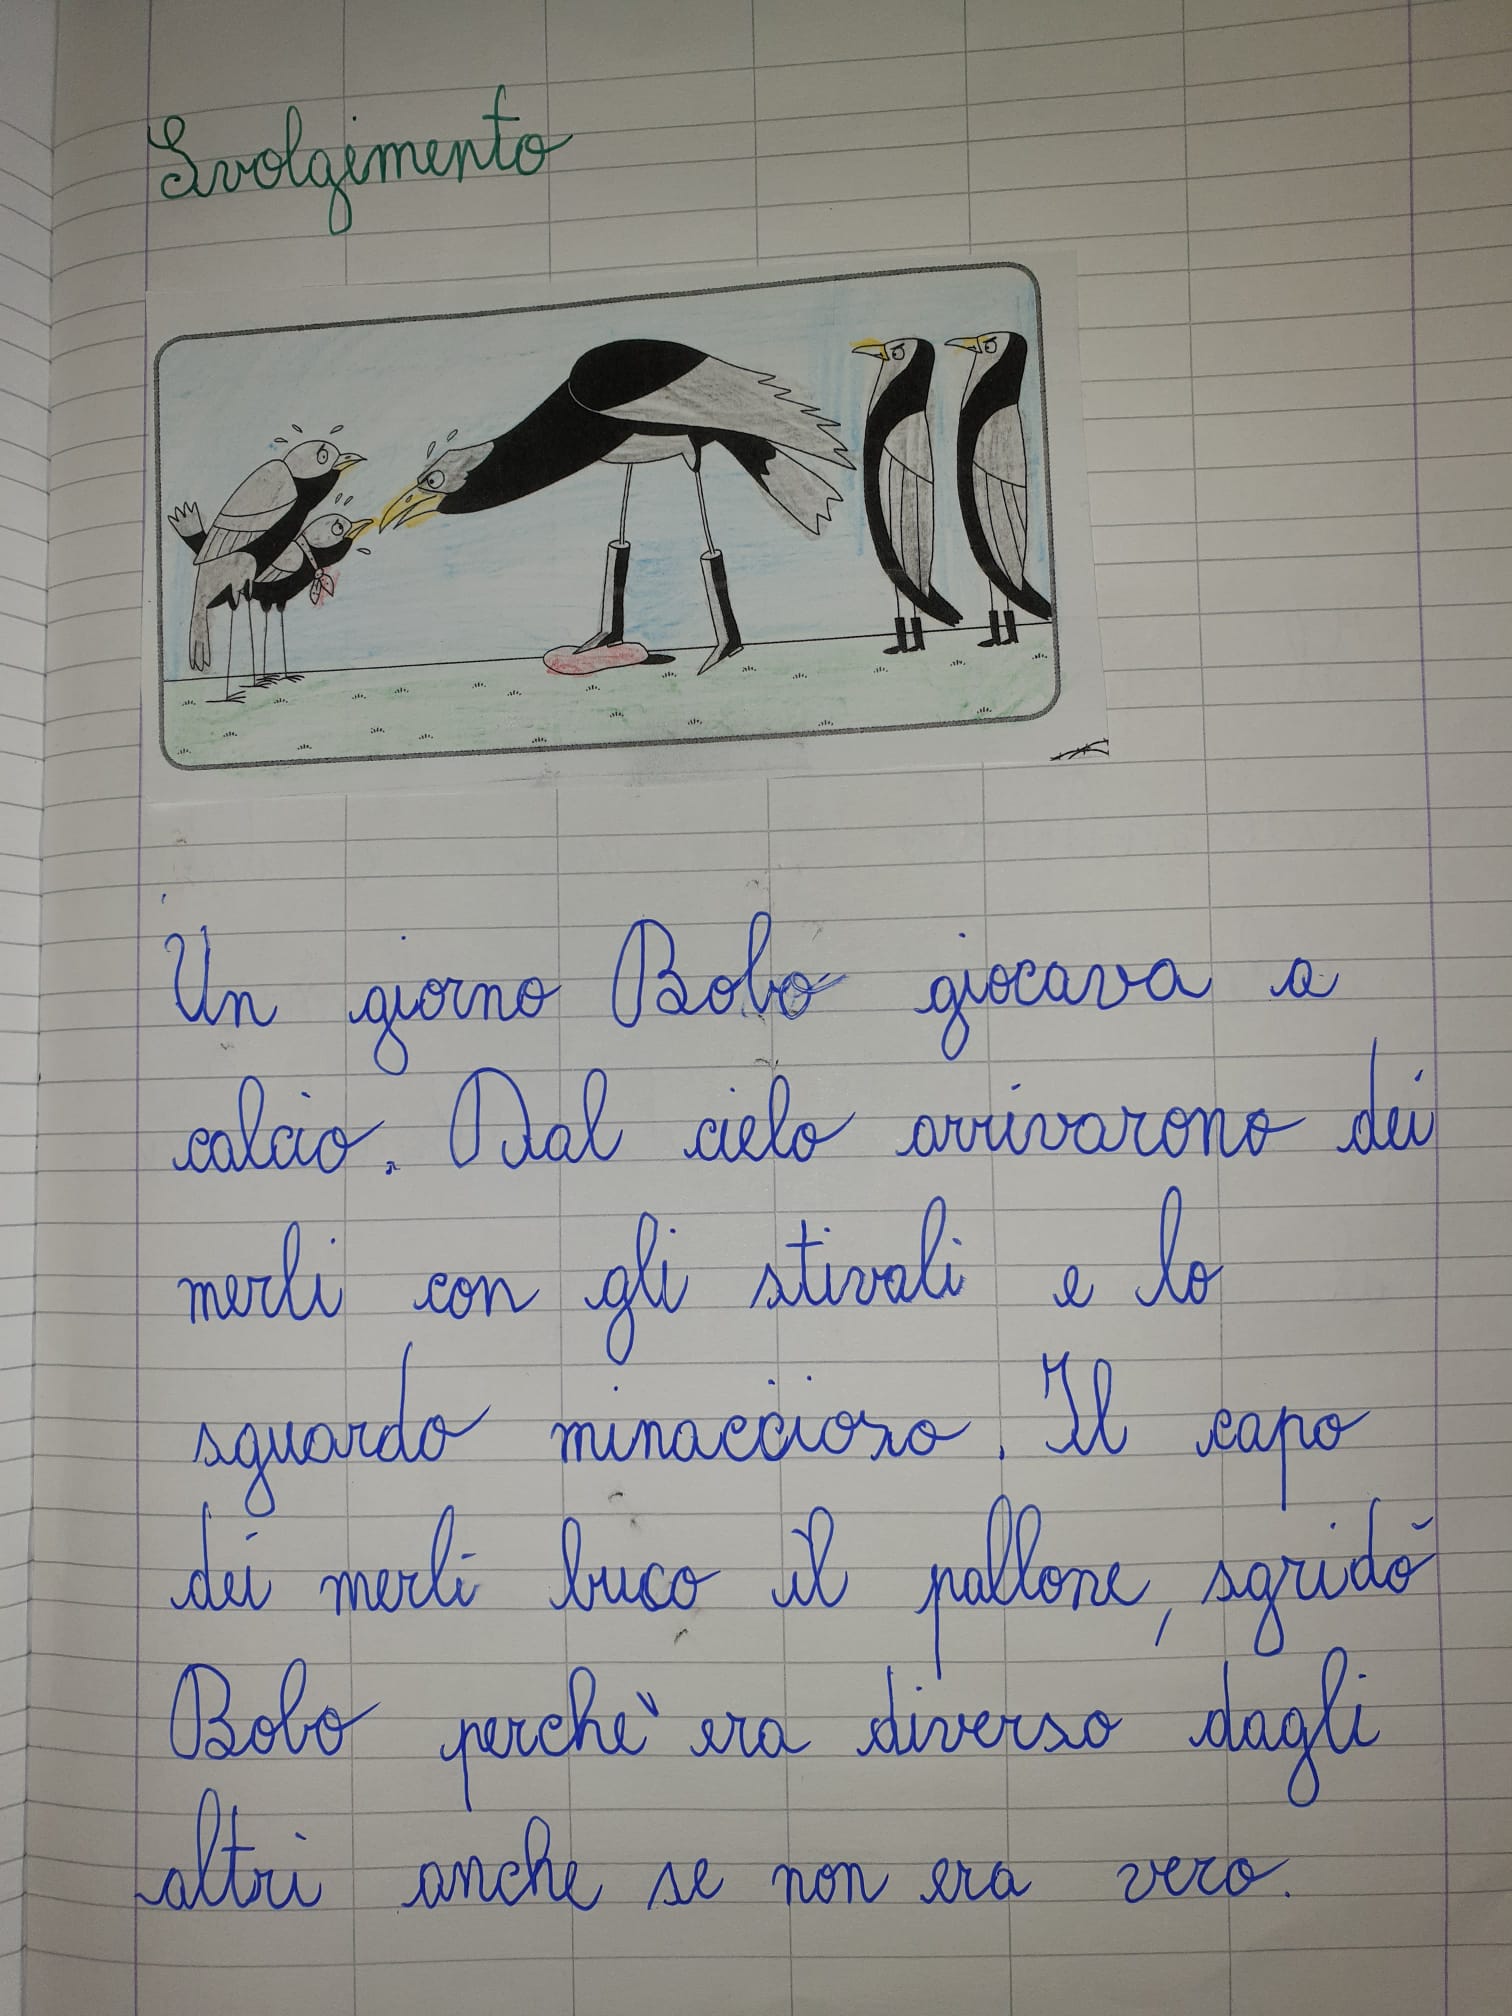 Svolgimento
Un giorno Bobo giocava a
calcio. Dal cielo arrivarono dei
merli con gli stivali e lo
sguardo minaccioso. Il capo
dei merli buco il pallone, sgridò
Bobo perchè era diverso dagli
altri anche se non era vero.